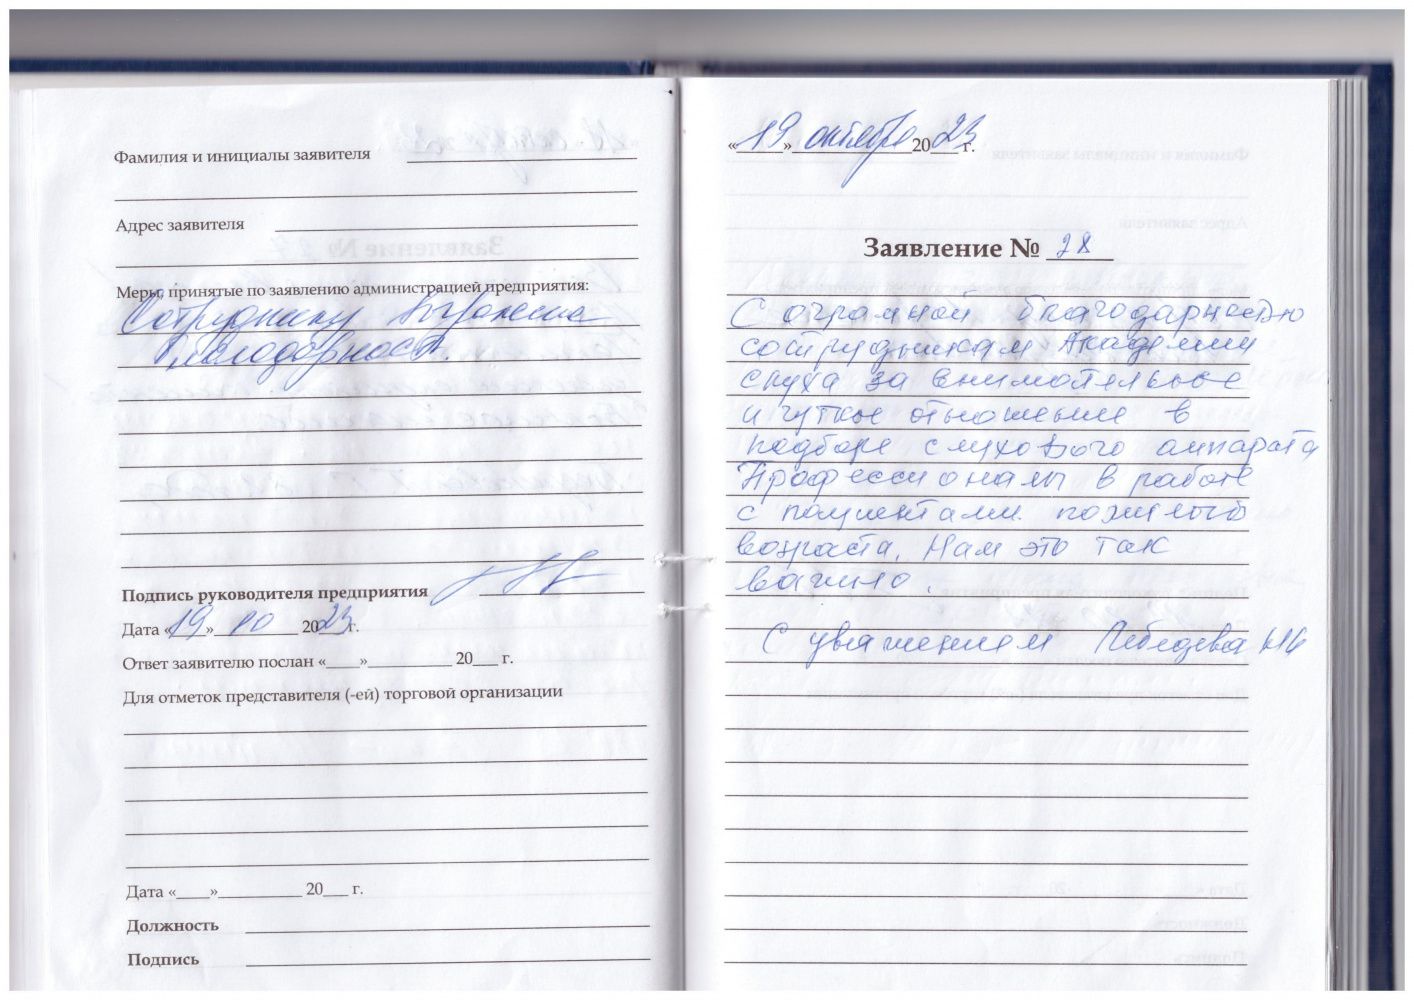 Фамилия и инициалы заявителя
Адрес заявителя
Меры, принятые по заявлению администрацией предприятия:
Сотруднику выражена
благодарность.
Подпись руководителя предприятия
Дата «19» 10 2023 г.
Ответ заявителю послан «____»__________ 20___ г.
Для отметок представителя (-ей) торговой организации
Дата «____»__________ 20___ г.
Должность
Подпись
«19» октября 2023 г.
Заявление № 28
С огромной благодарностью
сотрудникам Академии
слуха за внимательное
и чуткое отношение в
подборе слухового аппарата
Профессионалы в работе
с пациентами пожилого
возраста. Нам это так
важно.
С уважением Лебедева